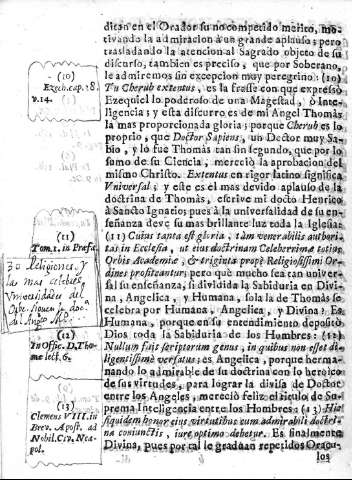 ditan en el Orador su no competido merito, mo-
tivando la admiracion à un grande aplauso; pero
trasladando la atencion al Sagrado objeto de su
discurso, tambien es preciso, que por Soberano,
le admiremos sin excepcion muy peregrino: (10)
Tu Cherub extentus, es la frasse con que expresò
Ezequiel lo poderoso de una Magestad, ò Inte-
ligencia; y esta discurro es de mi Angel Thomàs
la mas proporcionada gloria; porque Cherub es lo
proprio, que Doctor Sapiens, un Doctor muy Sa-
bio, y lo fue Thomàs tan sin segundo, que por lo
sumo de su Ciencia, mereciò la aprobacion del
mismo Christo. Extentus en rigor latino significa
Vniversal; y este es el mas devido aplauso de la
doctrina de Thomàs, escrive mi docto Henrico
à Sancto Ignatio; pues à la universalidad de su en-
señanza deve su mas brillante luz toda la Iglesia:
(11) Cuius tanta est gloria, tam venerabilis authori-
tas in Ecclesia, ut eius doctrinam Celeberrimæ totius
Orbis Academiæ, & triginta propè Religiosissimi Or-
dines profiteantur; pero què mucho sea tan univer-
sal su enseñanza, si dividida la Sabiduria en Divi-
na, Angelica, y Humana, sola la de Thomàs se
celebra por Humana, Angelica, y Divina? Es
Humana, porque en su entendimiento depositò
Dios toda la Sabiduria de los Hombres: (12)
Nullum fuit scriptorum genus, in quibus non esset di-
ligentissimè versatus; es Angelica, porque herma-
nando lo admirable de su doctrina con lo heroico
de sus virtudes, para lograr la divisa de Doctor
entre los Angeles, mereciò feliz el titulo de Su-
prema Inteligencia entre los Hombres: (13) Hic
siquidem honor eius virtutibus cum admirabili doctri-
na coniunctis, iure optimo debetur. Es finalmente
Divina, pues por tal le graduan repetidos Oracu-
los
(10)
Ezech. cap. 28.
v. 14.
(11)
Tom. 1. in Præfa.
30 Religiones, y
las mas celebres
Vniversidades del
Orbe siguen la doc.a
de
(12)
In Offic. D. Tho-
me lect. 6.
(13)
Clemens VIII. in
Brev. Apost. ad
Nobil. Civ. Nea-
pol.